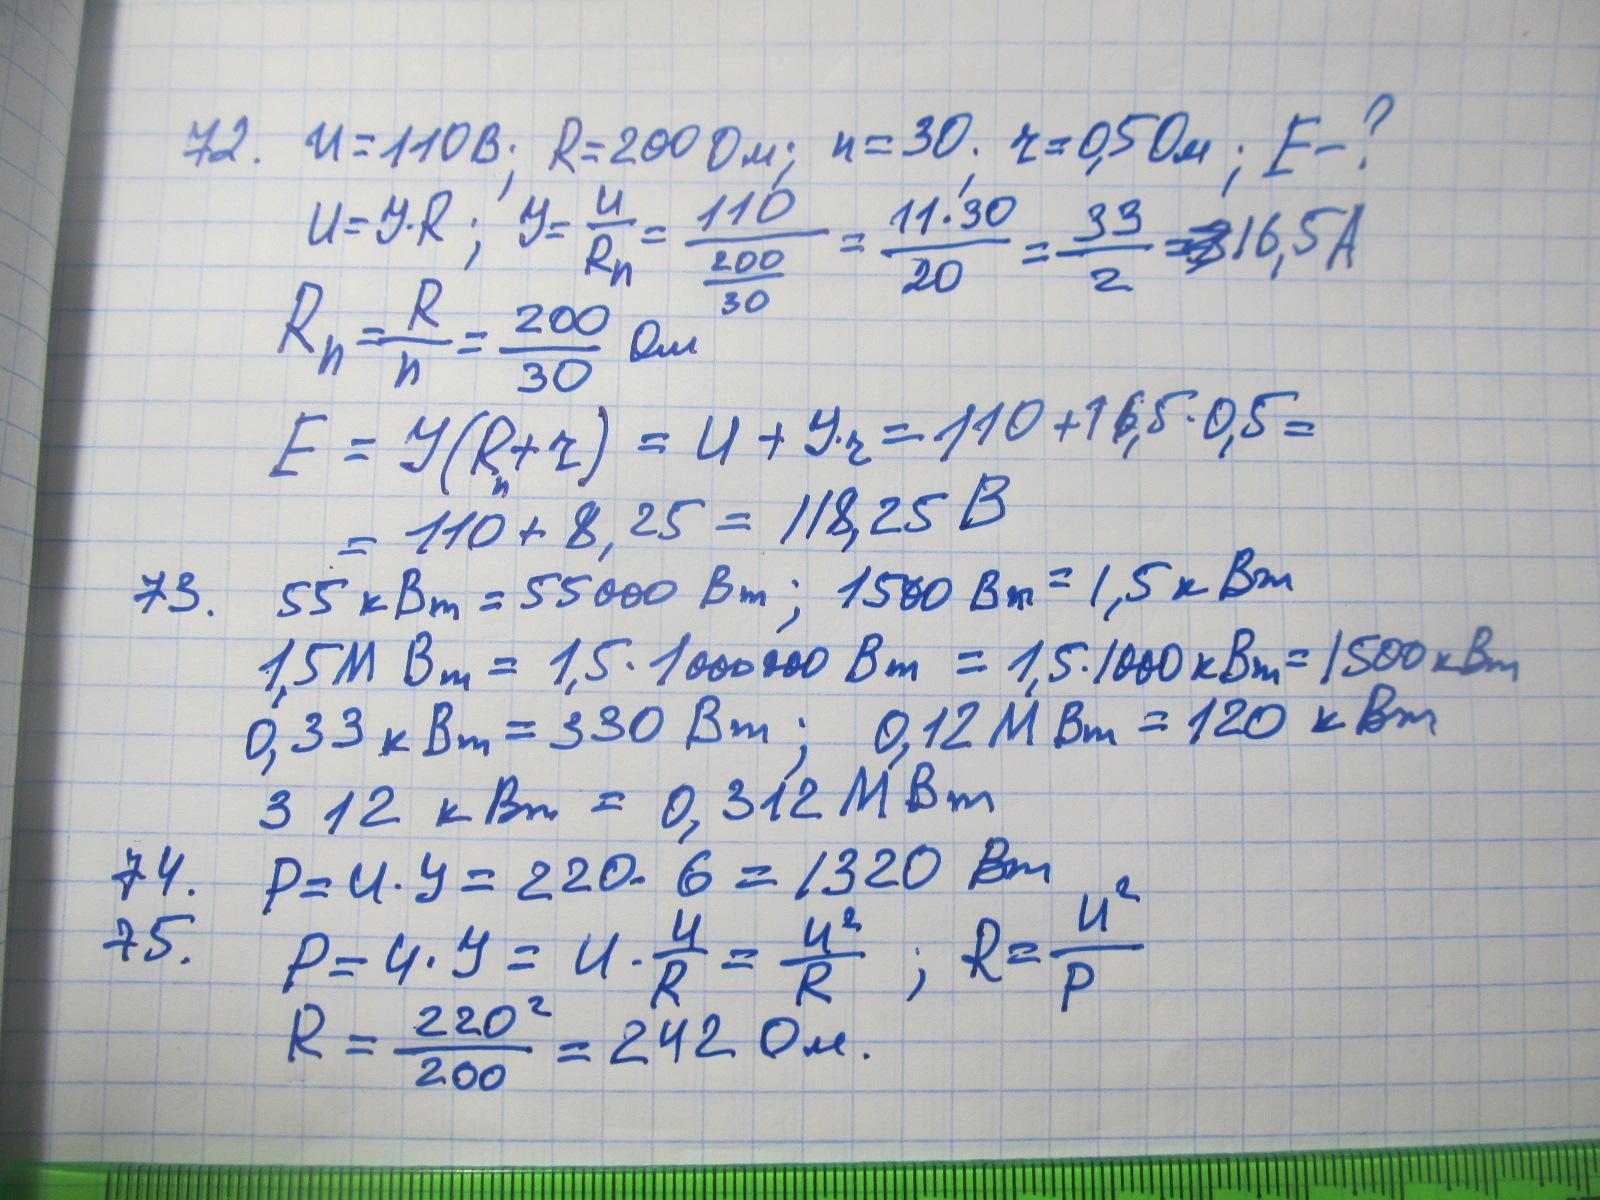 72. U=110В; R=200 Ом; n=30; r=0,5 Ом; E-?
U=У·R; У=U/Rn=110/(200/30)=11·30/20=33/2=16,5А
Rn=R/n=200/30 Ом
E=У(Rn+r)=U+У·r=110+16,5·0,5=
=110+8,25=118,25 В
73. 55 кВт=55000 Вт; 1500 Вт=1,5 кВт
1,5 МВт=1,5·1000000 Вт=1,5·1000 кВт=1500 кВт
0,33 кВт=330 Вт; 0,12 МВт=120 кВт
312 кВт=0,312 МВт
74. P=U·У=220·6=1320 Вт
75. P=U·У=U·U/R=U²/R; R=U²/P
R=220²/200=242 Ом.